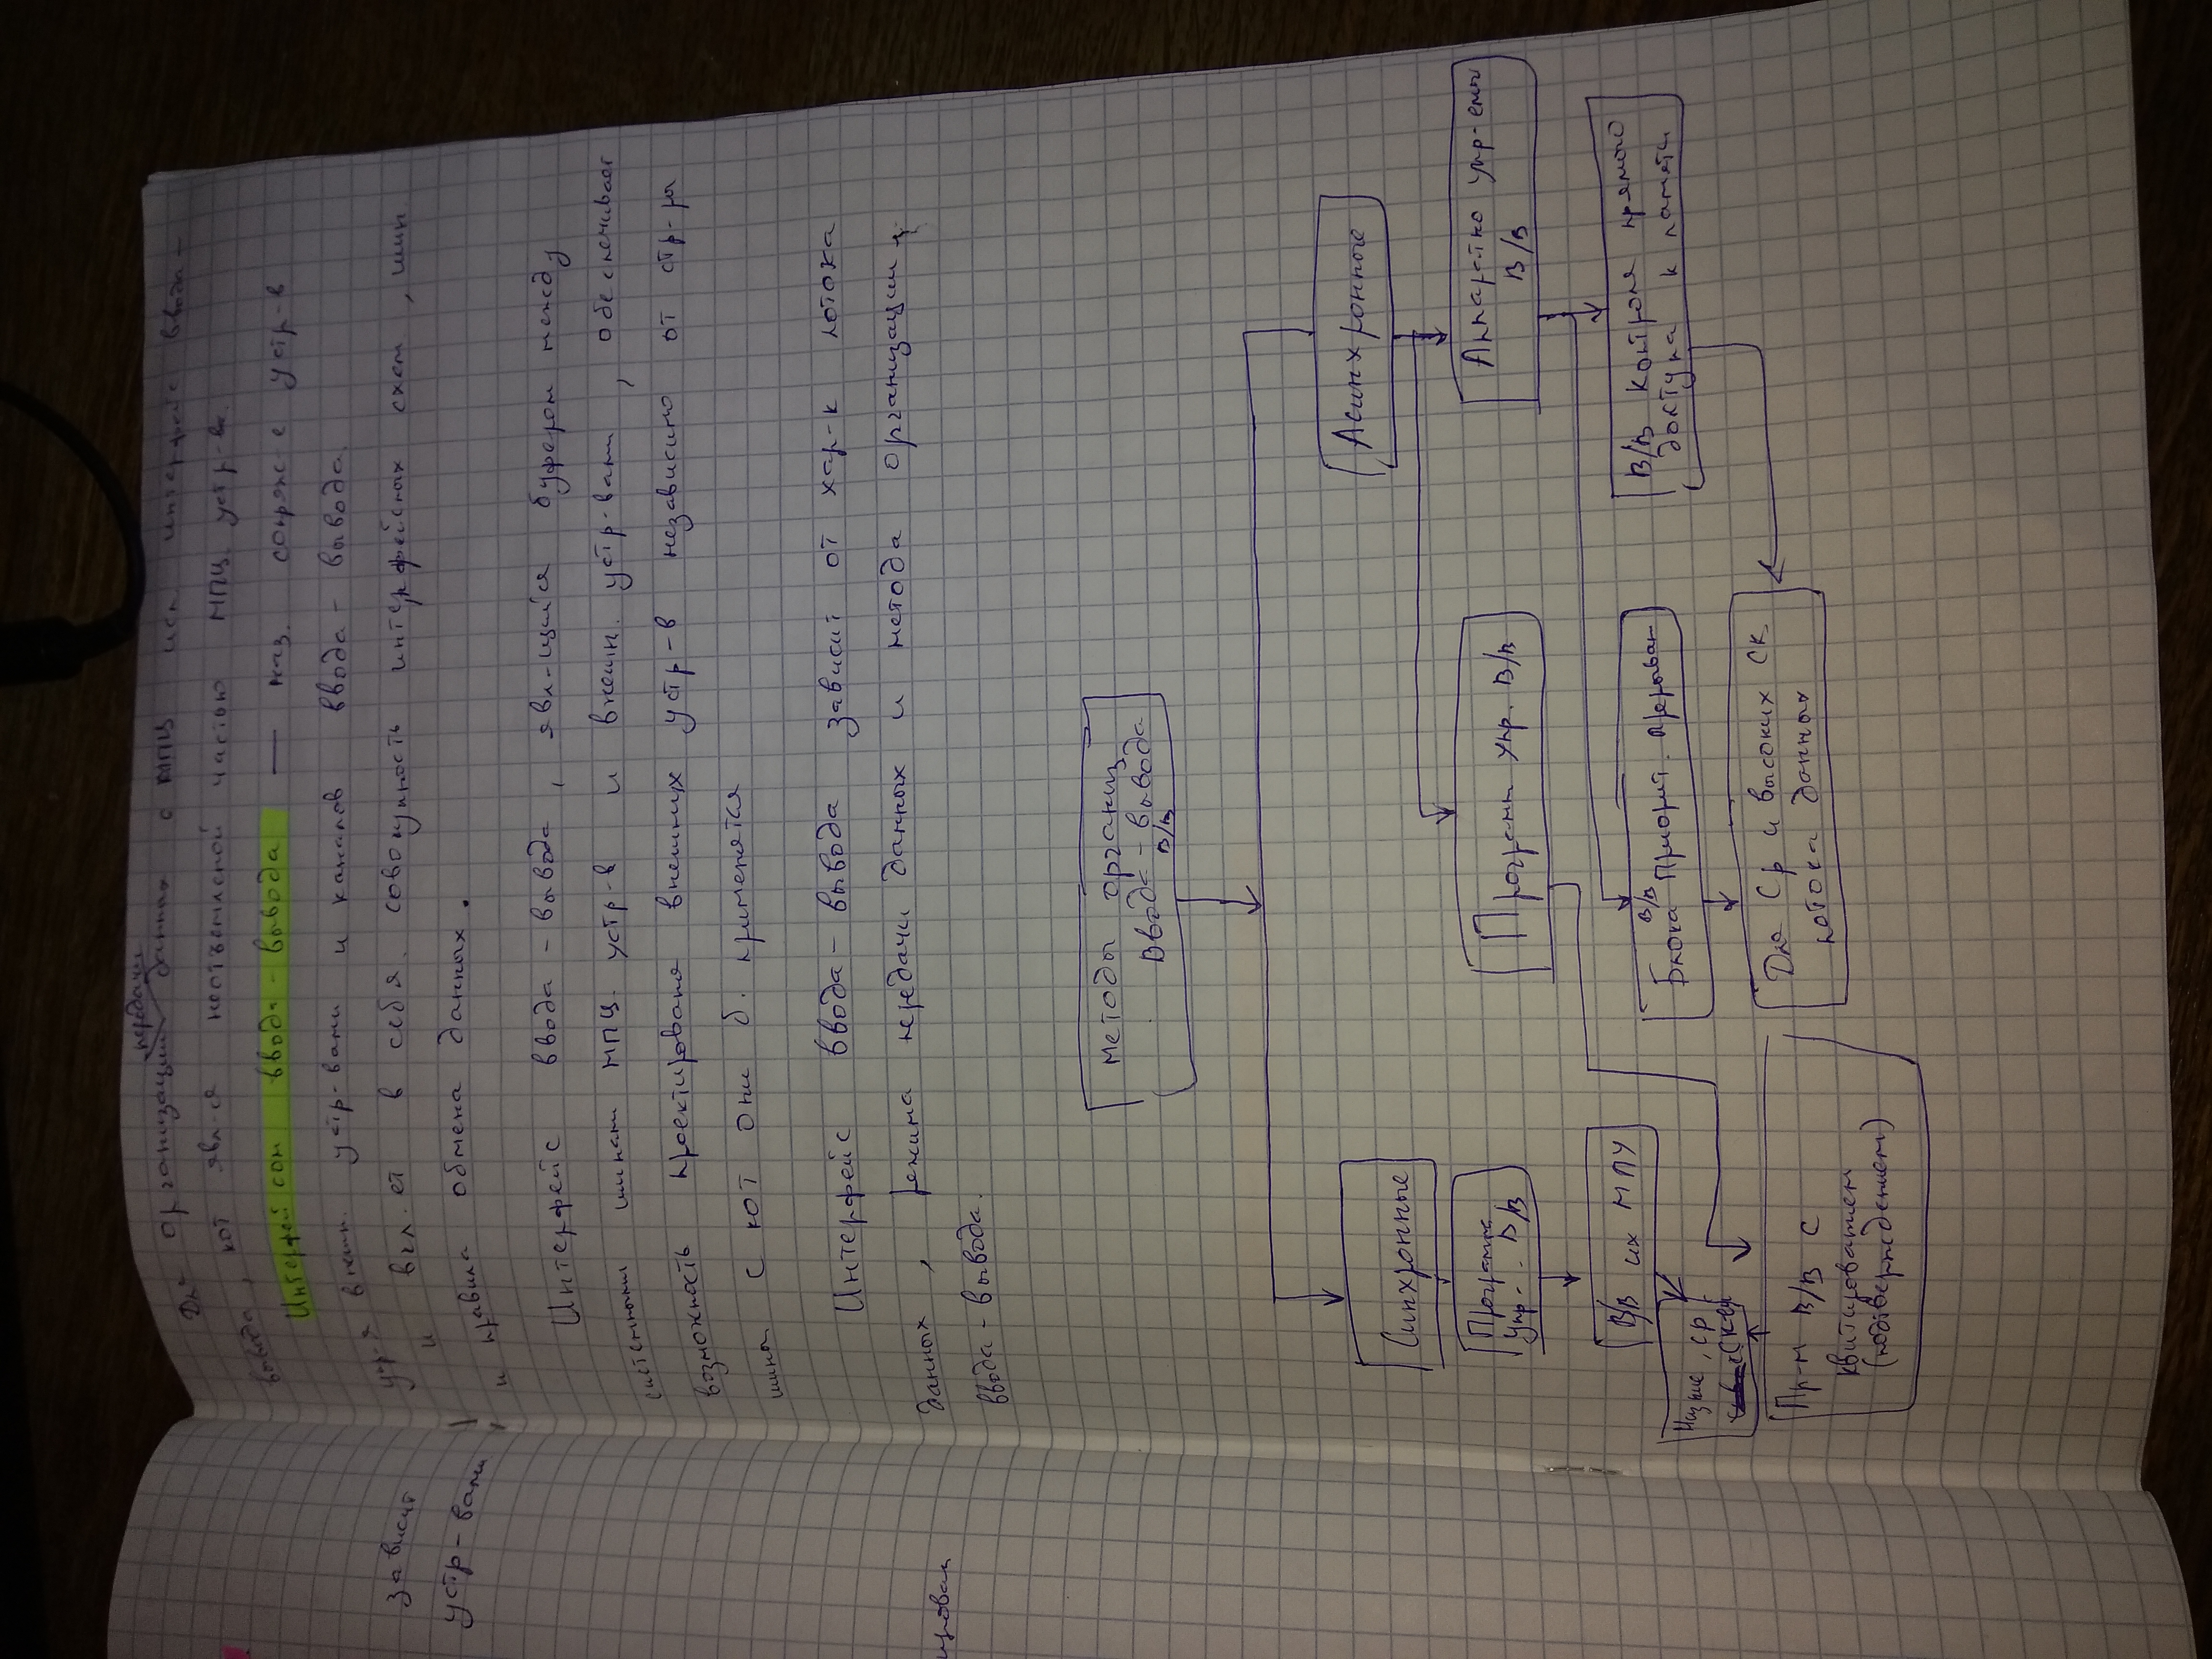 зависит
устр-вами
ирован
передачи
Для организации данных с МПЦ исп интерфейс ввода-
вывода, кот явл-я неотъемлемой частью МПЦ. устр-ва.
Интерфейсом ввода-вывода — наз. сопряж-е устр-в
упр-я внешн. устр-вами и каналов ввода-вывода.
и вкл. ет в себя. совокупность интерфейсных схем, шин
и правила обмена данных.
Интерфейс ввода-вывода, явл-щийся буфером между
системными шинам МПЦ. устр-в и внешн. устр-вам, обеспечивает
возможность проектированя внешних устр-в независимо от стр-ры
шины с кот они б. применятся
Интерфейс ввода-вывода зависит от хар-к потока
данных, режима передачи данных и метода организации
ввода-вывода.
Методы организ
Ввода-вывода
В/В
Синхронные
Асинхронные
Программ
Упр. В/В
Программ Упр. В/В
Аппаратно упр-емы
В/В
В/В их МПУ
В/В
Блока Приорит. Прерыван
В/В Контроля прямого
доступа к памяти
Низкие, ср
Скор
Для Ср и высоких Ск
потока данных
Пр-м В/В С
квитированием
(подтверждением)